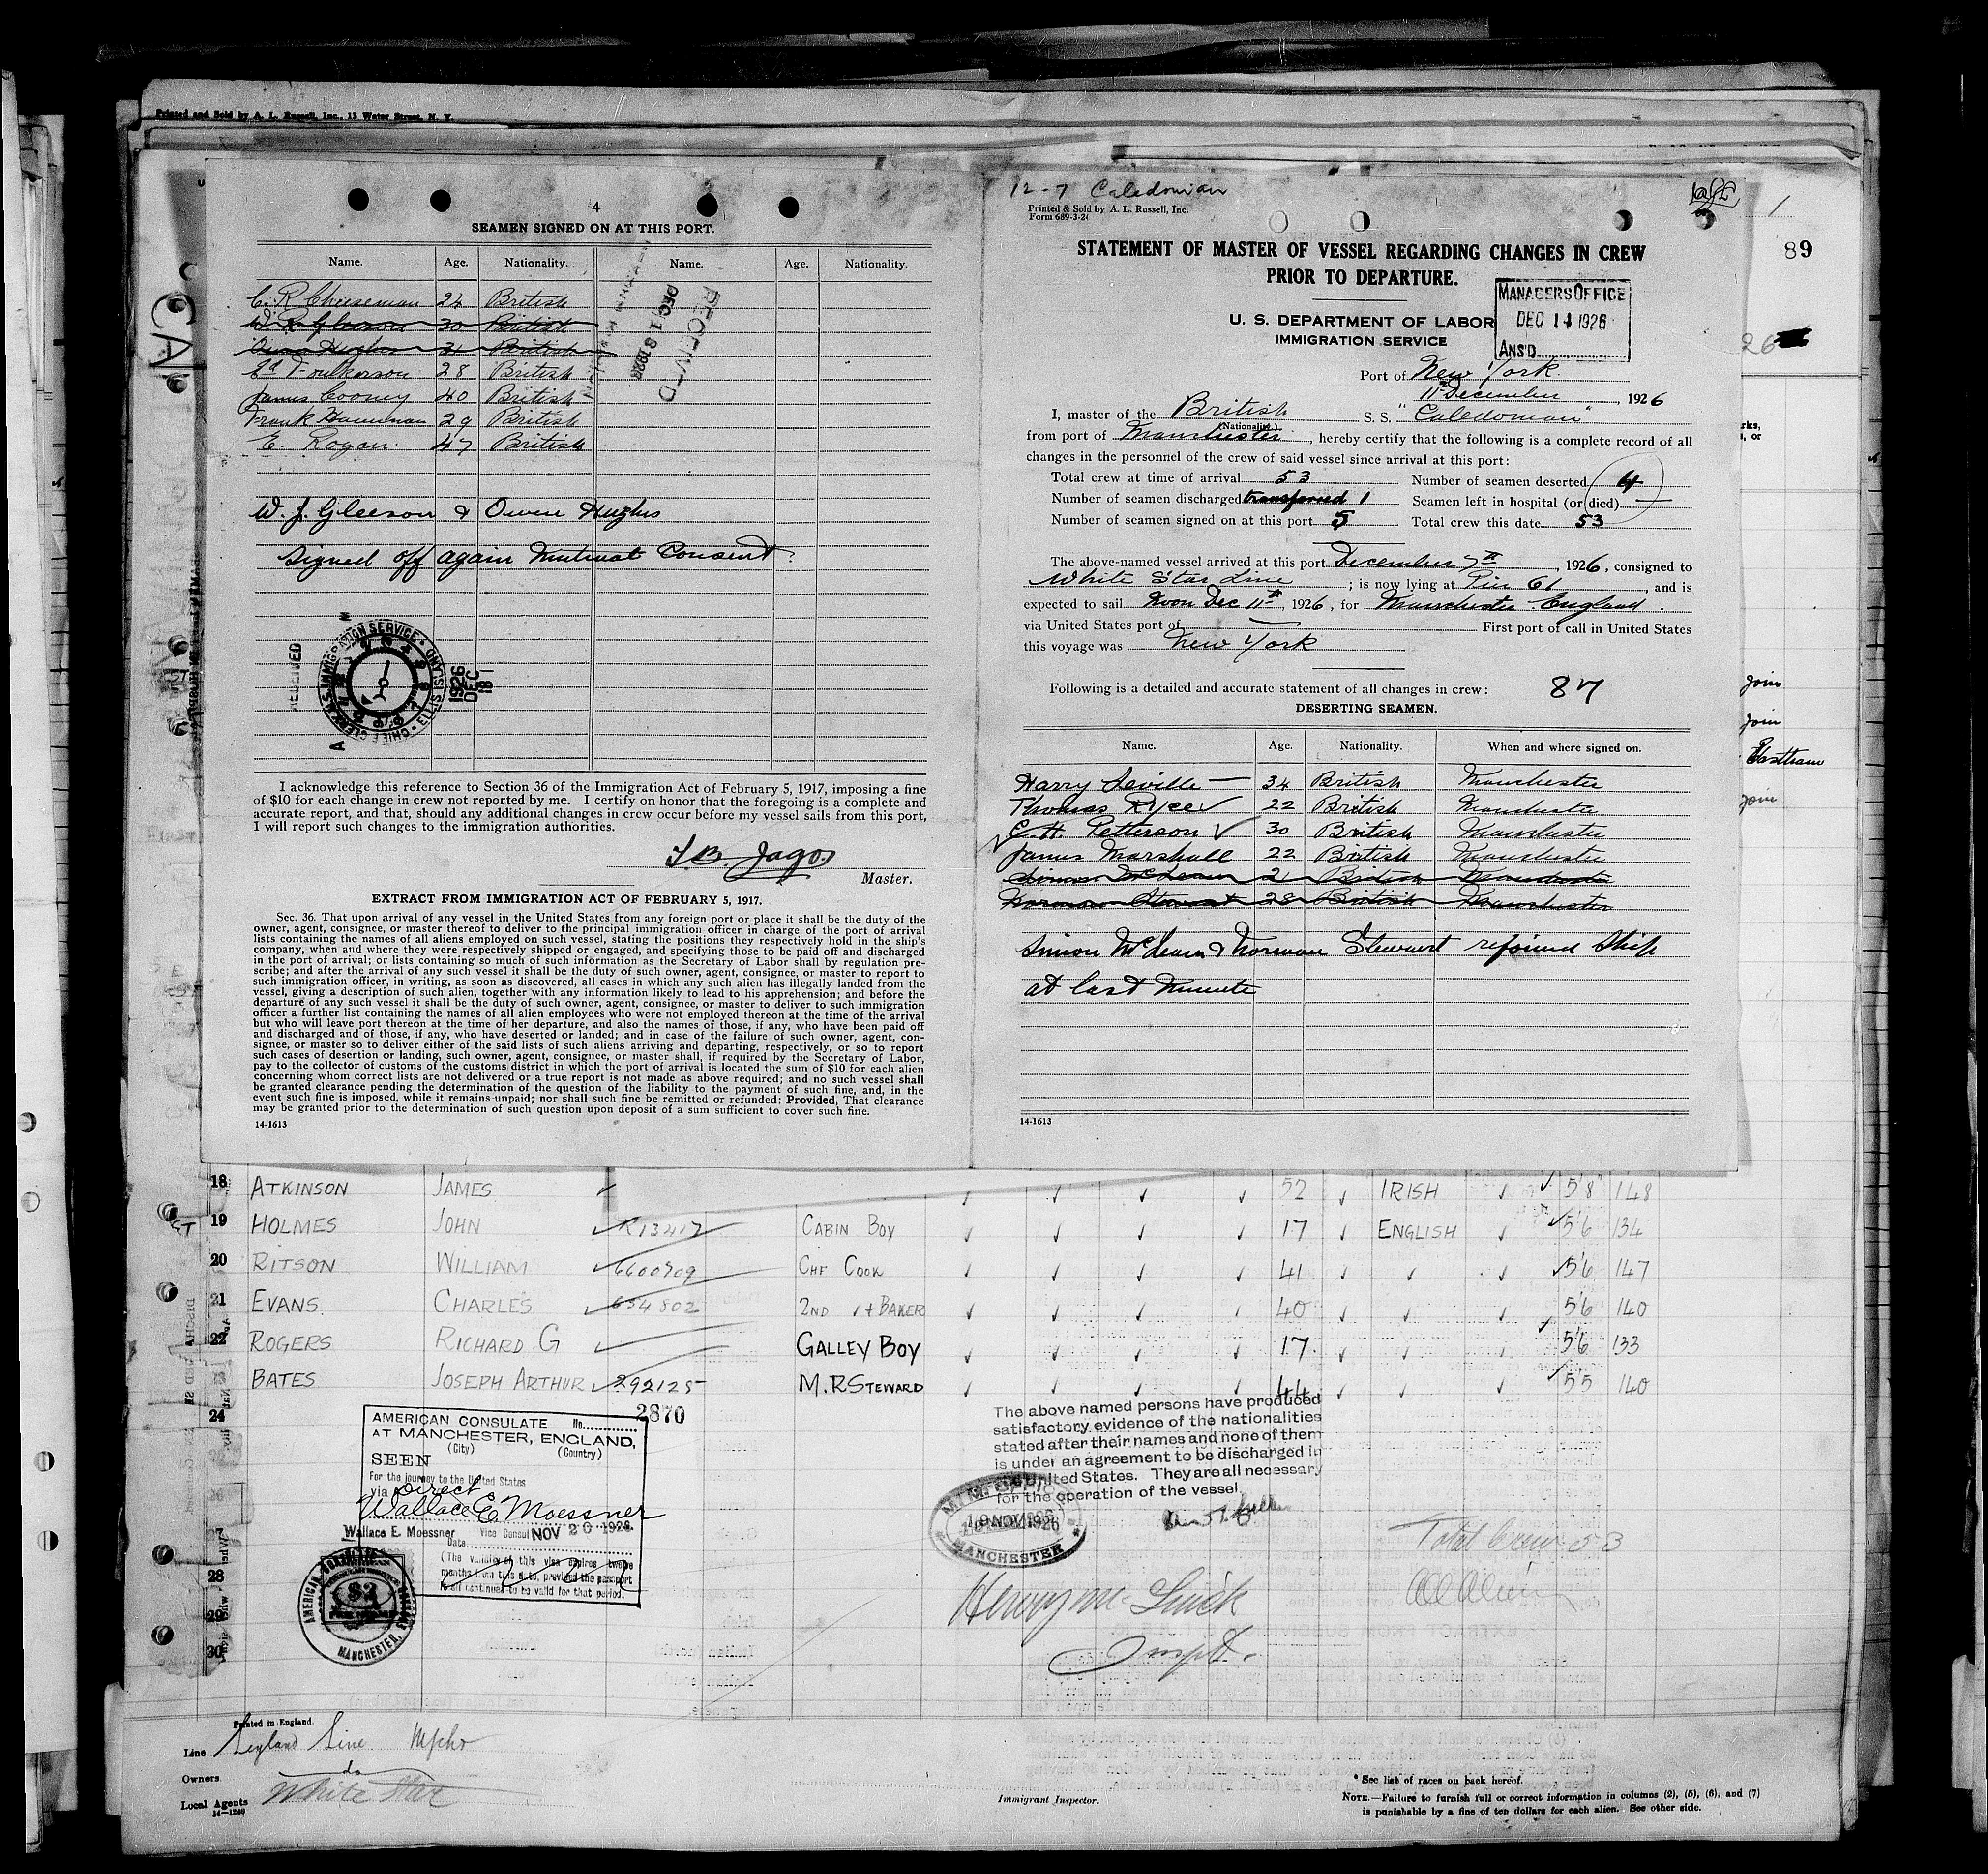 Printed and Sold by A. L. Russell, Inc., 13 Water Street, N. Y.
4
SEAMEN SIGNED ON AT THIS PORT.
Name. Age. Nationality. Name. Age. Nationality.
C. R Cheeseman 24 British
30 British
31 British
Ed Foulkerson 28 British
James Cooney 40 British
Frank 29 British
E. Rogan 47 British
W. J. Gleeson & Owen Hughes
Signed off again Mutual Consent.
RECEIVED
DEC 18 1926
RECEIVED
U.S. IMMIGRATION SERVICE
ELLIS ISLAND
CHIEF CLERK
1926
DEC
18
I acknowledge this reference to Section 36 of the Immigration Act of February 5, 1917, imposing a fine
of $10 for each change in crew not reported by me. I certify on honor that the foregoing is a complete and
accurate report, and that, should any additional changes in crew occur before my vessel sails from this port,
I will report such changes to the immigration authorities.
J.B. Jago
Master.
EXTRACT FROM IMMIGRATION ACT OF FEBRUARY 5, 1917.
Sec. 36. That upon arrival of any vessel in the United States from any foreign port or place it shall be the duty of the
owner, agent, consignee, or master thereof to deliver to the principal immigration officer in charge of the port of arrival
lists containing the names of all aliens employed on such vessel, stating the positions they respectively hold in the ship's
company, when and where they were respectively shipped or engaged, and specifying those to be paid off and discharged
in the port of arrival; or lists containing so much of such information as the Secretary of Labor shall by regulation pre-
scribe; and after the arrival of any such vessel it shall be the duty of such owner, agent, consignee, or master to report to
such immigration officer, in writing, as soon as discovered, all cases in which any such alien has illegally landed from the
vessel, giving a description of such alien, together with any information likely to lead to his apprehension; and before the
departure of any such vessel it shall be the duty of such owner, agent, consignee, or master to deliver to such immigration
officer a further list containing the names of all alien employees who were not employed thereon at the time of the arrival
but who will leave port thereon at the time of her departure, and also the names of those, if any, who have been paid off
and discharged and of those, if any, who have deserted or landed; and in case of the failure of such owner, agent, con-
signee, or master so to deliver either of the said lists of such aliens arriving and departing, respectively, or so to report
such cases of desertion or landing, such owner, agent, consignee, or master shall, if required by the Secretary of Labor,
pay to the collector of customs of the customs district in which the port of arrival is located the sum of $10 for each alien
concerning whom correct lists are not delivered or a true report is not made as above required; and no such vessel shall
be granted clearance pending the determination of the question of the liability to the payment of such fine, and, in the
event such fine is imposed, while it remains unpaid; nor shall such fine be remitted or refunded: Provided, That clearance
may be granted prior to the determination of such question upon deposit of a sum sufficient to cover such fine.
14-1613
12-7 Caledonian
Printed & Sold by A. L. Russell, Inc.
Form 689-3-26
STATEMENT OF MASTER OF VESSEL REGARDING CHANGES IN CREW
PRIOR TO DEPARTURE.
MANAGERS OFFICE
DEC 14 1926
ANS'D
U. S. DEPARTMENT OF LABOR
IMMIGRATION SERVICE
Port of New York
11th December, 1926
I, master of the British S. S. "Caledonian"
(Nationality)
from port of Manchester, hereby certify that the following is a complete record of all
changes in the personnel of the crew of said vessel since arrival at this port:
Total crew at time of arrival 53 Number of seamen deserted 4
Number of seamen discharged transferred 1 Seamen left in hospital (or died) —
Number of seamen signed on at this port 5 Total crew this date 53
The above-named vessel arrived at this port December 7th, 1926, consigned to
White Star Line; is now lying at Pier 61, and is
expected to sail Noon Dec 11th, 1926, for Manchester England.
via United States port of — First port of call in United States
this voyage was New York
Following is a detailed and accurate statement of all changes in crew: 87
DESERTING SEAMEN.
Name. Age. Nationality. When and where signed on.
Harry Seville 34 British Manchester
Thomas Ryce 22 British Manchester
C. H. Petterson 30 British Manchester
James Marshall 22 British Manchester
Simon McLean 21 British Manchester
Norman Stewart 28 British Manchester
Simon McLean & Norman Stewart rejoined Ship
at last minute
14-1613
1
89
26
join
join
Eastham
join
18 ATKINSON JAMES 52 IRISH 5'8" 148
19 HOLMES JOHN R13417 CABIN BOY 17 ENGLISH 5'6 134
20 RITSON WILLIAM 6600909 CHF COOK 41 5'6 147
21 EVANS. CHARLES 654802 2ND & BAKER 40 5'6 140
22 ROGERS RICHARD G GALLEY BOY 17 5'6 133
BATES JOSEPH ARTHUR 892125 M.R STEWARD 44 5'5 140
24
28
29
30
2870
AMERICAN CONSULATE No.
AT MANCHESTER, ENGLAND,
(City) (Country)
SEEN
For the journey to the United States
via Direct
Wallace E Moessner
Wallace E. Moessner Vice Consul NOV 20 1926
Date
(The validity of this visa expires twelve
months from this date, provided the passport
is all continued to be valid for that period.
AMERICAN CONSULATE
$2
MANCHESTER,
The above named persons have produced
satisfactory evidence of the nationalities
stated after their names and none of them
is under an agreement to be discharged in
the United States. They are all necessary
for the operation of the vessel.
M.M. OFFICE
19 NOV 1926
MANCHESTER
Total Crew 53
Printed in England.
Line Leyland Line
Owners do
Local Agents White Star
14-1240
Immigrant Inspector.
* See list of races on back hereof.
NOTE.—Failure to furnish full or correct information in columns (2), (5), (6), and (7)
is punishable by a fine of ten dollars for each alien. See other side.